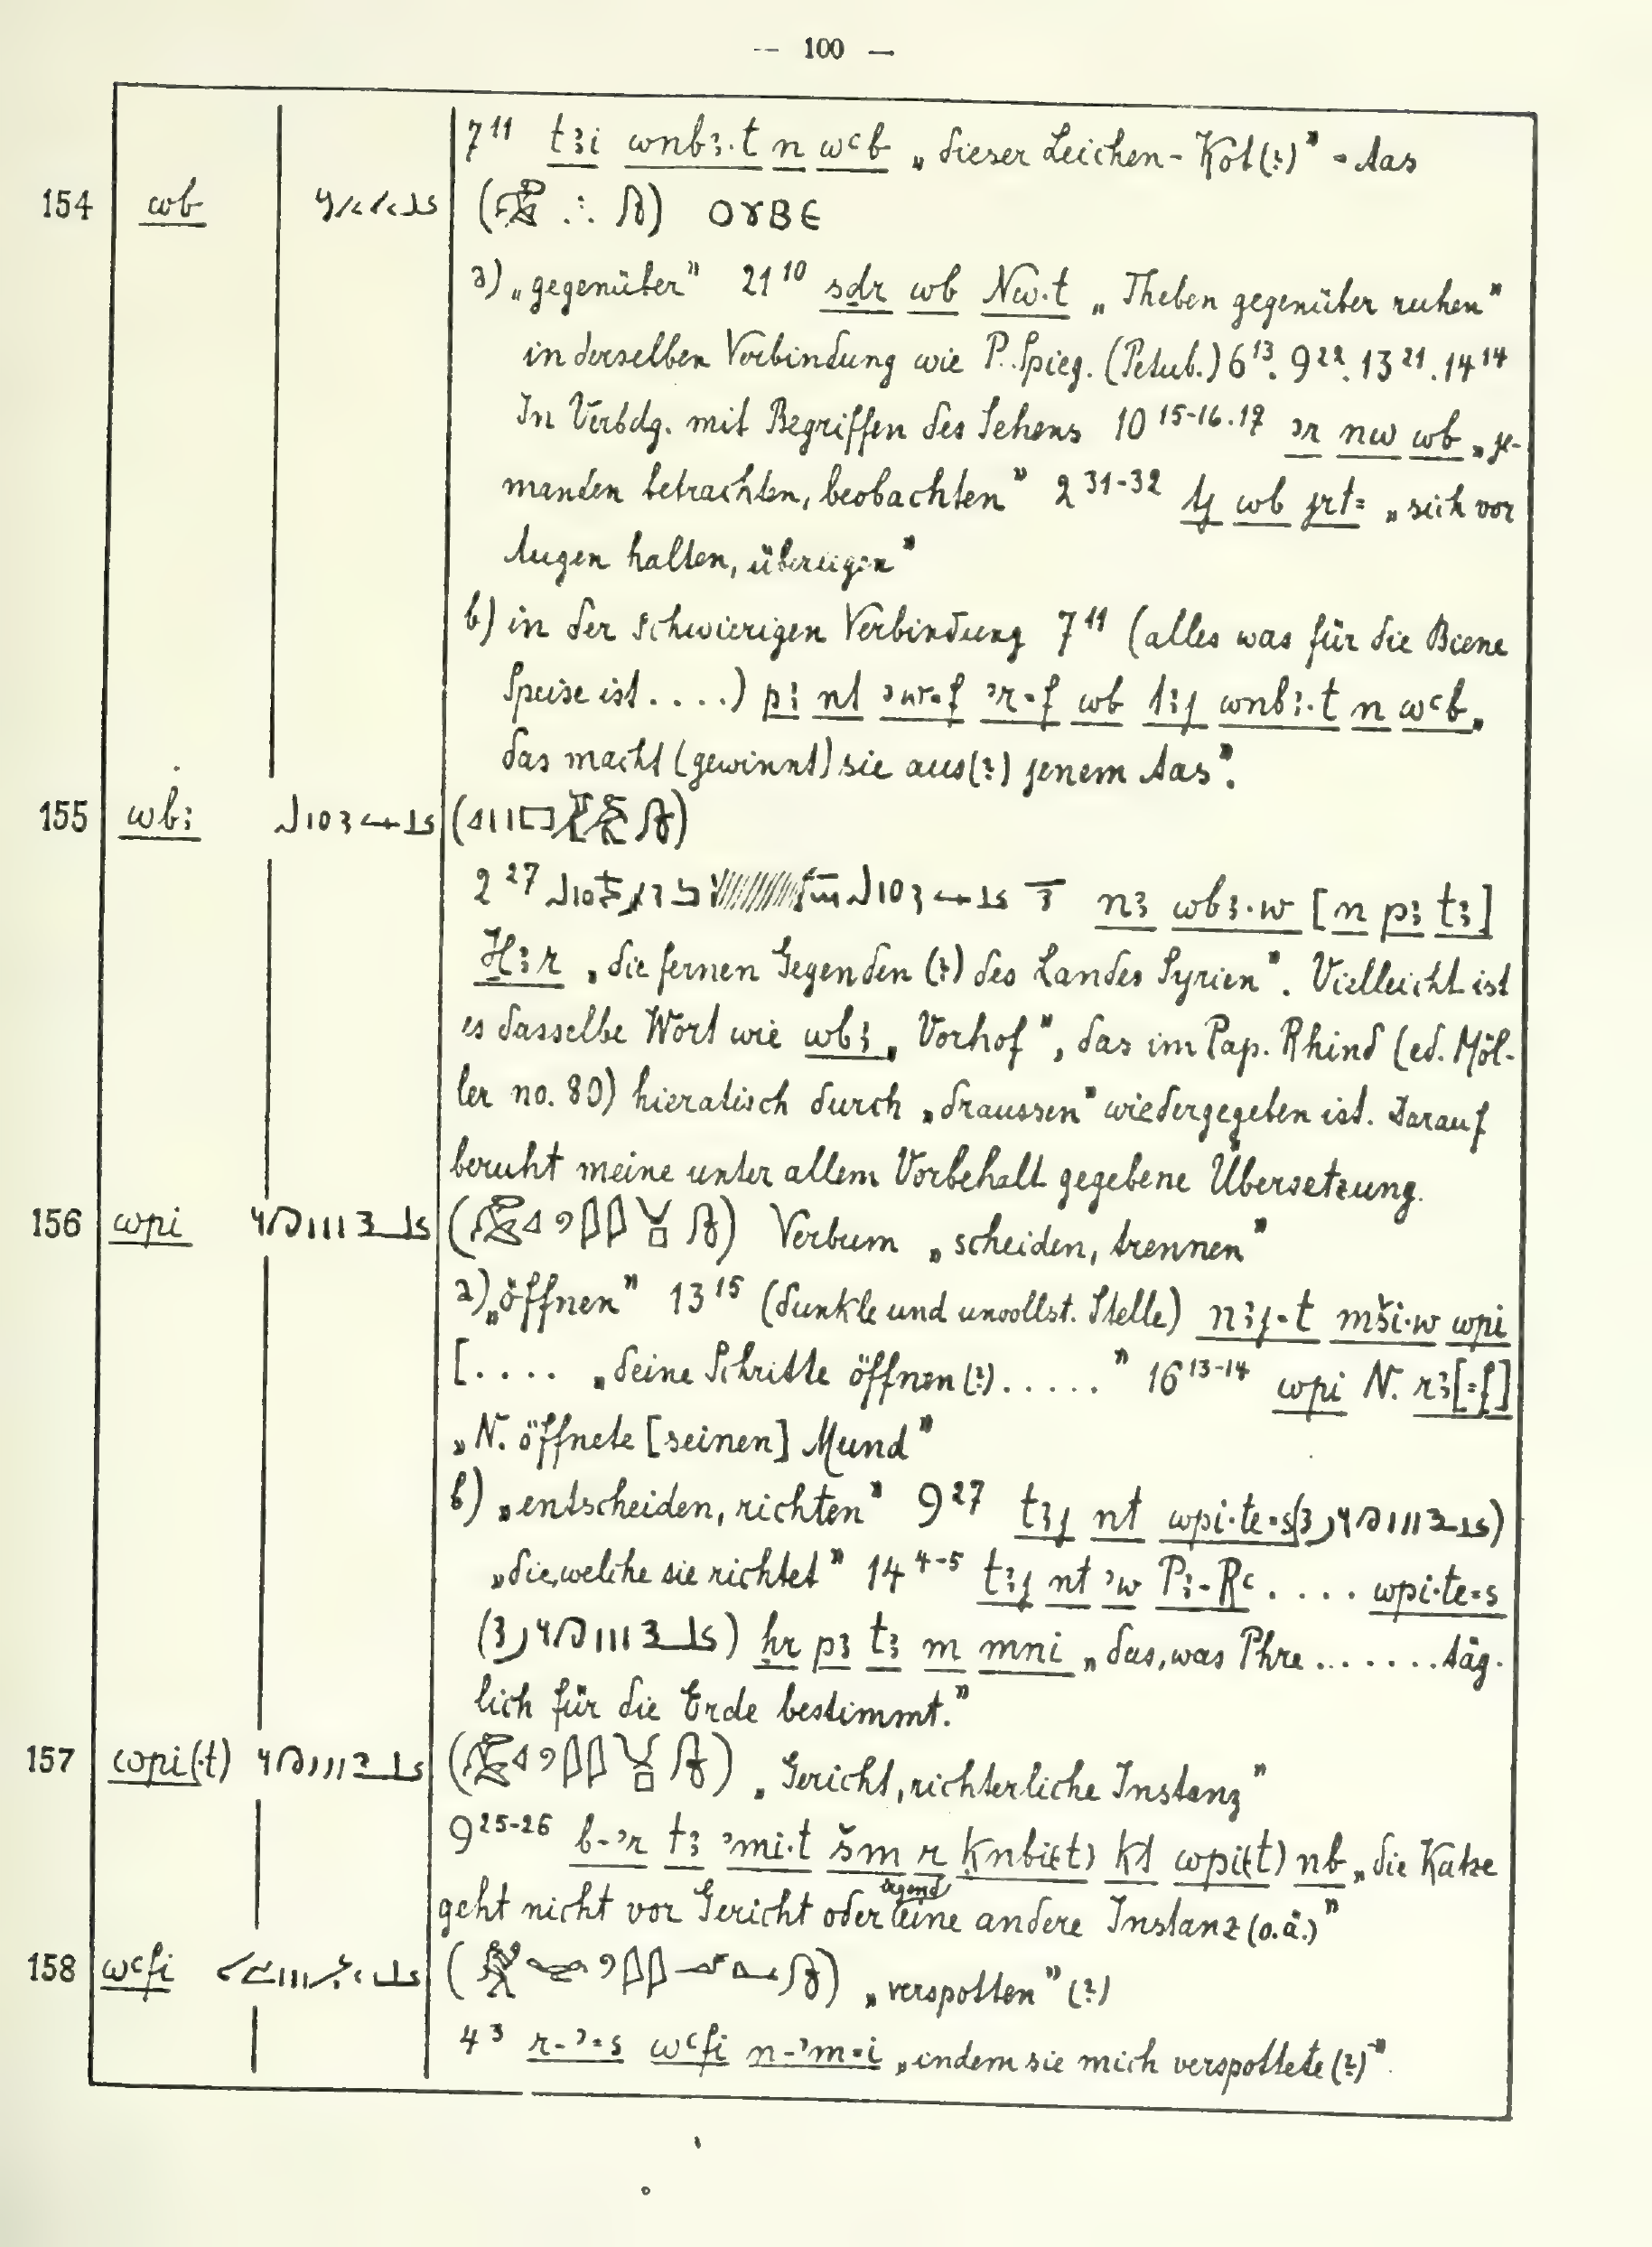 — 100 —
7¹¹ tꜣi wnbꜣ·t n wꜥb „dieser Leichen-Kot(?)” = Aas
154 wb ( ) ⲟⲩⲃⲉ
a) „gegenüber” 21¹⁰ sdr wb Nw·t „Theben gegenüber ruhen”
in derselben Verbindung wie P. Spieg. (Petub.) 6¹³. 9²². 13²¹. 14¹⁴
In Verbdg. mit Begriffen des Sehens 10¹⁵⁻¹⁶·¹⁷ ꜣr nw wb „je-
manden betrachten, beobachten” 2³¹⁻³² ṱj wb jrt= „sich vor
Augen halten, überlegen”
b) in der schwierigen Verbindung 7¹¹ (alles was für die Biene
Speise ist ....) pꜣ nt ꜣw=f ꜣr=f wb tꜣj wnbꜣ·t n wꜥb „
das macht (gewinnt) sie aus(?) jenem Aas”.
155 wbꜣ ( )
2²⁷ nꜣ wbꜣ·w [n pꜣ tꜣ]
H̱ꜣr „die fernen Gegenden (?) des Landes Syrien”. Vielleicht ist
es dasselbe Wort wie wbꜣ „Vorhof”, das im Pap. Rhind (ed. Möl-
ler no. 80) hieratisch durch „draussen” wiedergegeben ist. Darauf
beruht meine unter allem Vorbehalt gegebene Übersetzung.
156 wpi ( ) Verbum „scheiden, trennen”
a) „öffnen” 13¹⁵ (dunkle und unvollst. Stelle) nꜣj·t mši·w wpi
[.... „deine Schritte öffnen(?)....." 16¹³⁻¹⁴ wpi N. rꜣ[=f]
„N. öffnete [seinen] Mund”
b) „entscheiden, richten” 9²⁷ tꜣj nt wpi·te=s ( )
„die, welche sie richtet” 14⁴⁻⁵ tꜣj nt ꜣw Pꜣ-Rꜥ .... wpi·te=s
( ) ẖr pꜣ tꜣ m mni „das, was Phre ....... täg-
lich für die Erde bestimmt.”
157 wpi(·t) ( ) „Gericht, richterliche Instanz”
9²⁵⁻²⁶ b-ꜣr tꜣ ꜣmi·t šm r ḳnbi(t) kt wpi(t) nb „die Katze
geht nicht vor Gericht oder irgend eine andere Instanz (o.ä.)”
158 wꜥfi ( ) „verspotten” (?)
4³ r-ꜣ=s wꜥfi n-ꜣm=i „indem sie mich verspottete (?)”.